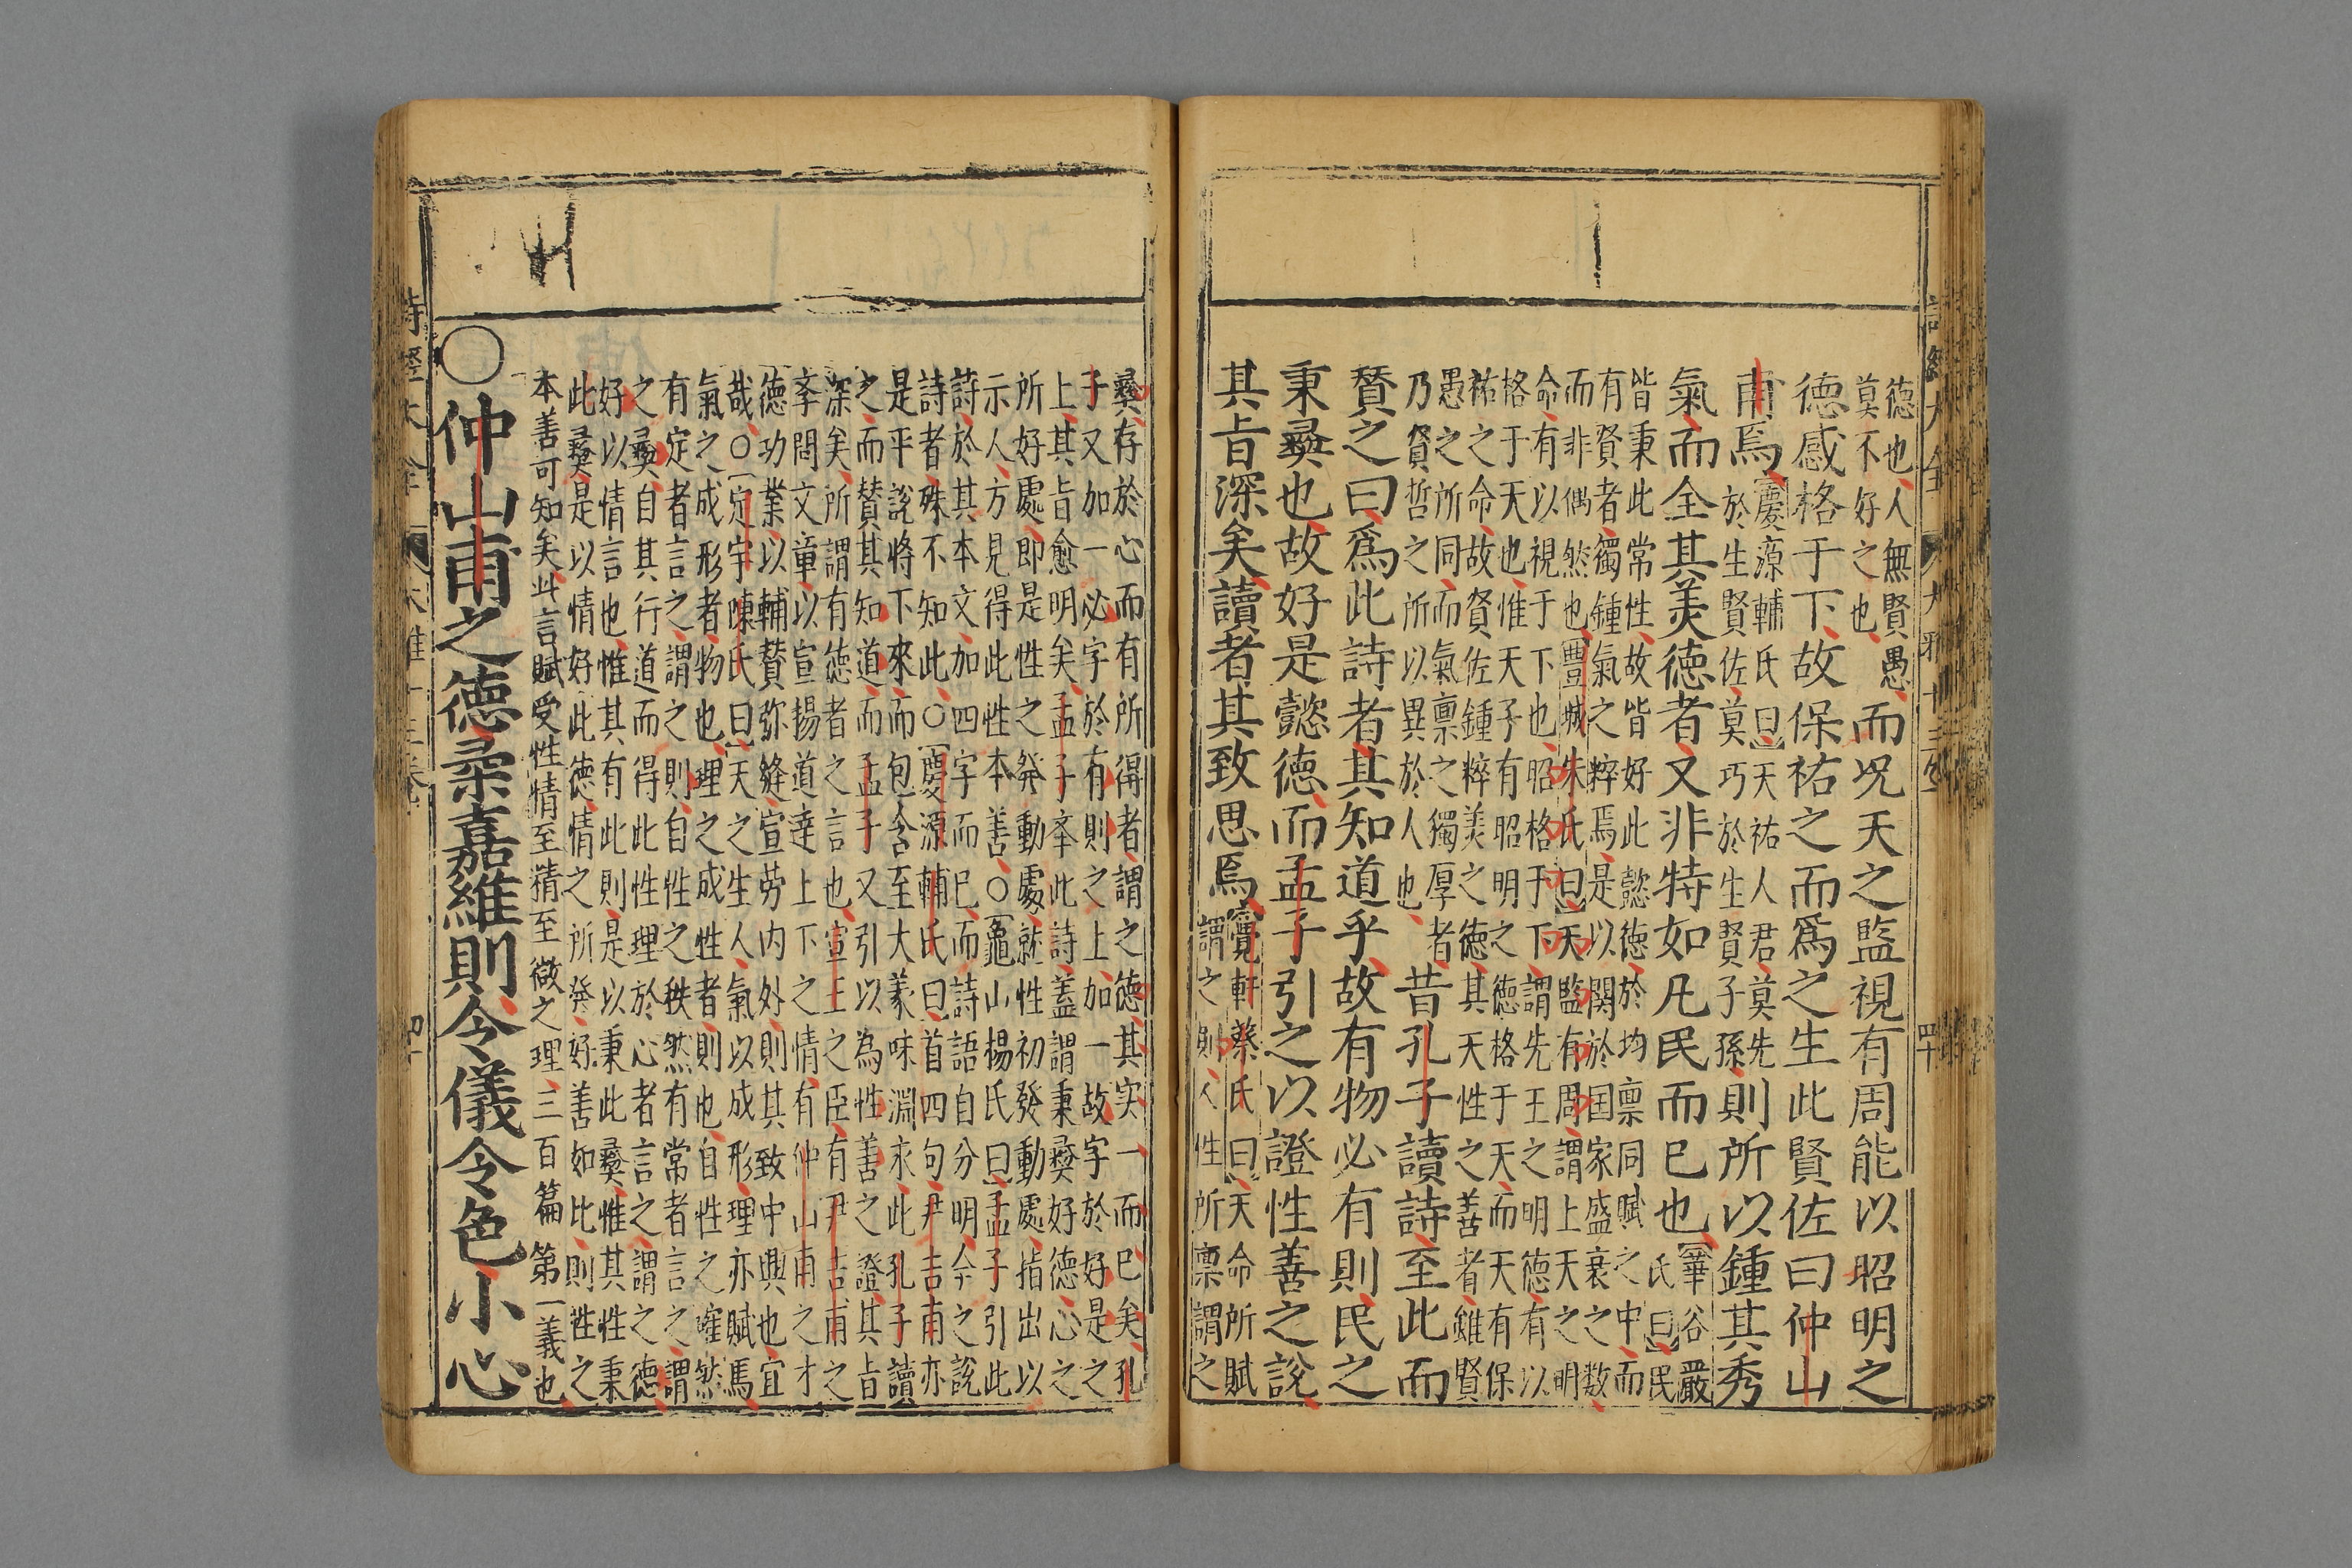 德也人無賢愚
莫不好之也
而况天之監視有周能以昭明之
德感格于下故保祐之而爲之生此賢佐曰仲山
甫焉
慶源輔氏曰天祐人君莫先
於生賢佐莫巧於生賢子孫
則所以鍾其秀
氣而全其美德者又非特如凡民而已也
華谷嚴
氏曰民
皆秉此常性故皆好此懿德於均禀同賦之中而
有賢者獨鍾氣之粹焉是以関於国家盛衰之数
而非偶然也豐城朱氏曰天監有周謂上天之明
命有以視于下也昭格于下謂先王之明德有以
格于天也惟天子有昭明之德格于天而天有保
祐之命故貧佐鍾粹美之德其天性之善者雖賢
愚之所同而氣禀之獨厚者
乃賢哲之所以異於人也
昔孔子讀詩至此而
賛之曰爲此詩者其知道乎故有物必有則民之
秉彝也故好是懿德而孟子引之以證性善之說
其旨深矣讀者其致思焉
覺軒蔡氏曰天命所賦
謂之則人性所禀謂之
彝存於心而有所得者謂之德其实一而已矣孔
子又加一必字於有則之上加一故字於好是之
上其旨愈明矣孟子夲此詩蓋謂秉彝好德心之
所好處即是性之発動處就性初發動處指出以
示人方見得此性本善○龜山楊氏曰孟子引此
詩於其本文加四字而已而詩語自分明今之說
詩者殊不知此○慶源輔氏曰首四句尹吉甫亦
是平說將下來而包含至大義味淵永此孔子讀
之而賛其知道而孟子又引以為性善之證其旨
深矣所謂有德者之言也宣王之臣有尹吉甫之
李問文章以宣揚道達上下之情有仲山甫之才
德功業以輔賛弥縫宣劳内外則其致中興也宜
哉○定宇陳氏曰天之生人氣以成形理亦賦焉
氣之成形者物也理之成性者則也自性之確然
有定者言之謂之則自性之秩然有常者言之謂
之彝自其行道而得此性理於心者言之謂之德
好以情言也惟其有此則是以秉此彝惟其性秉
此彝是以情好此德情之所発好善如比則性之
本善可知矣此言賦受性情至精至微之理三百篇第一義也
○仲山甫之德柔嘉維則令儀令色小心